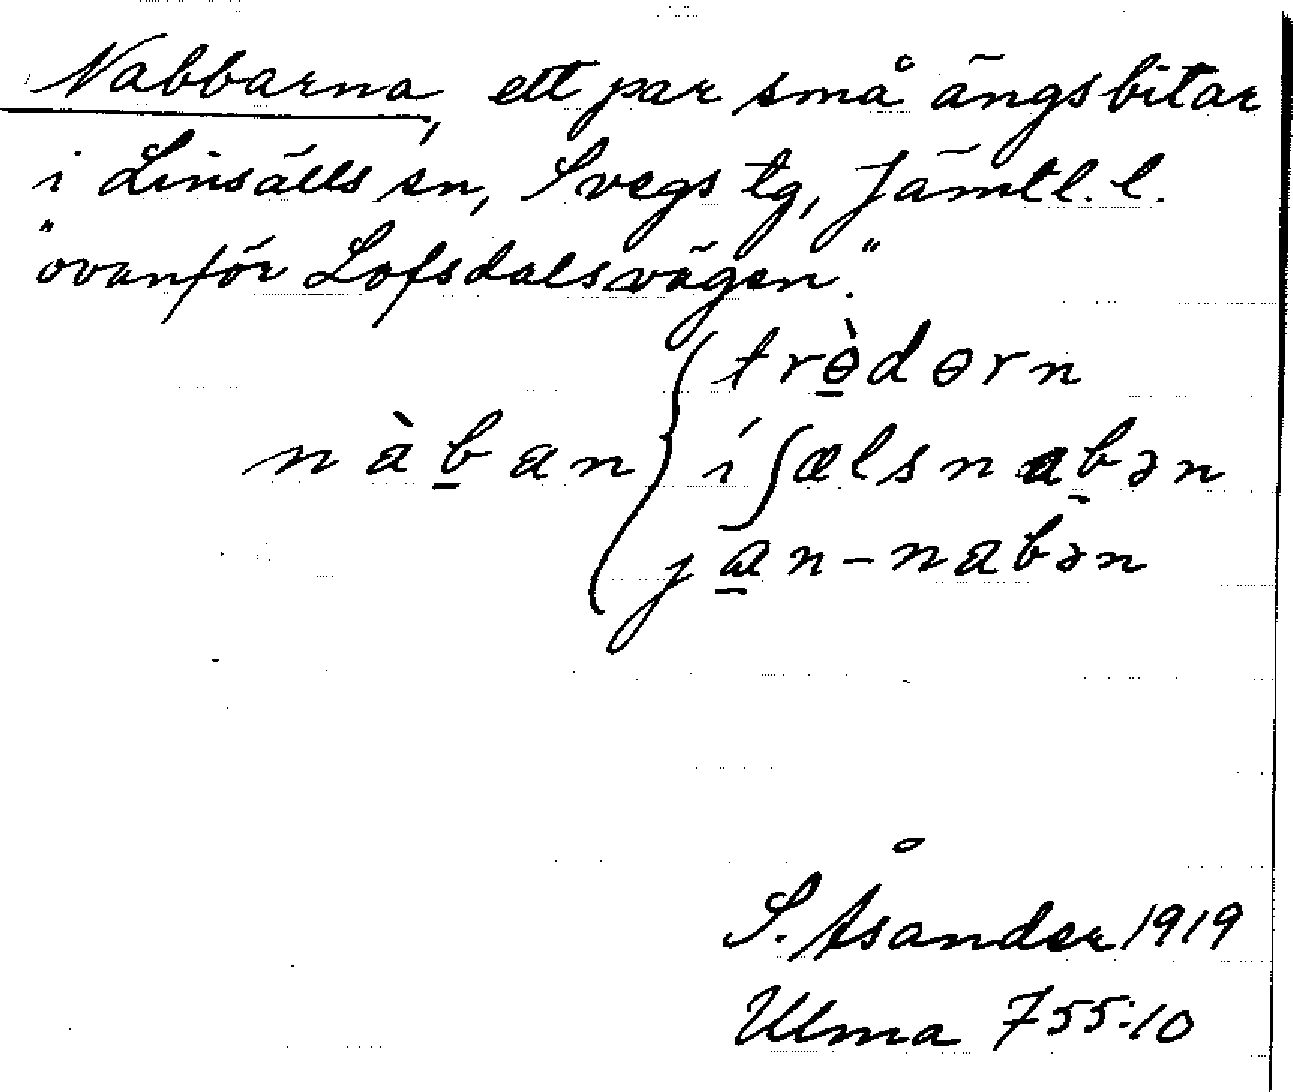 Nabbarna, ett par små ängsbitar
i Linsälls sn, Svegs tg, Jämtl. l.
"ovanför Lofsdalsvägen."
trɵ̠̀dɵrn
nàb̠an { íʃælsnab̠ən
ja̠n-nabən
S. Åsander 1919
Ulma 755:10